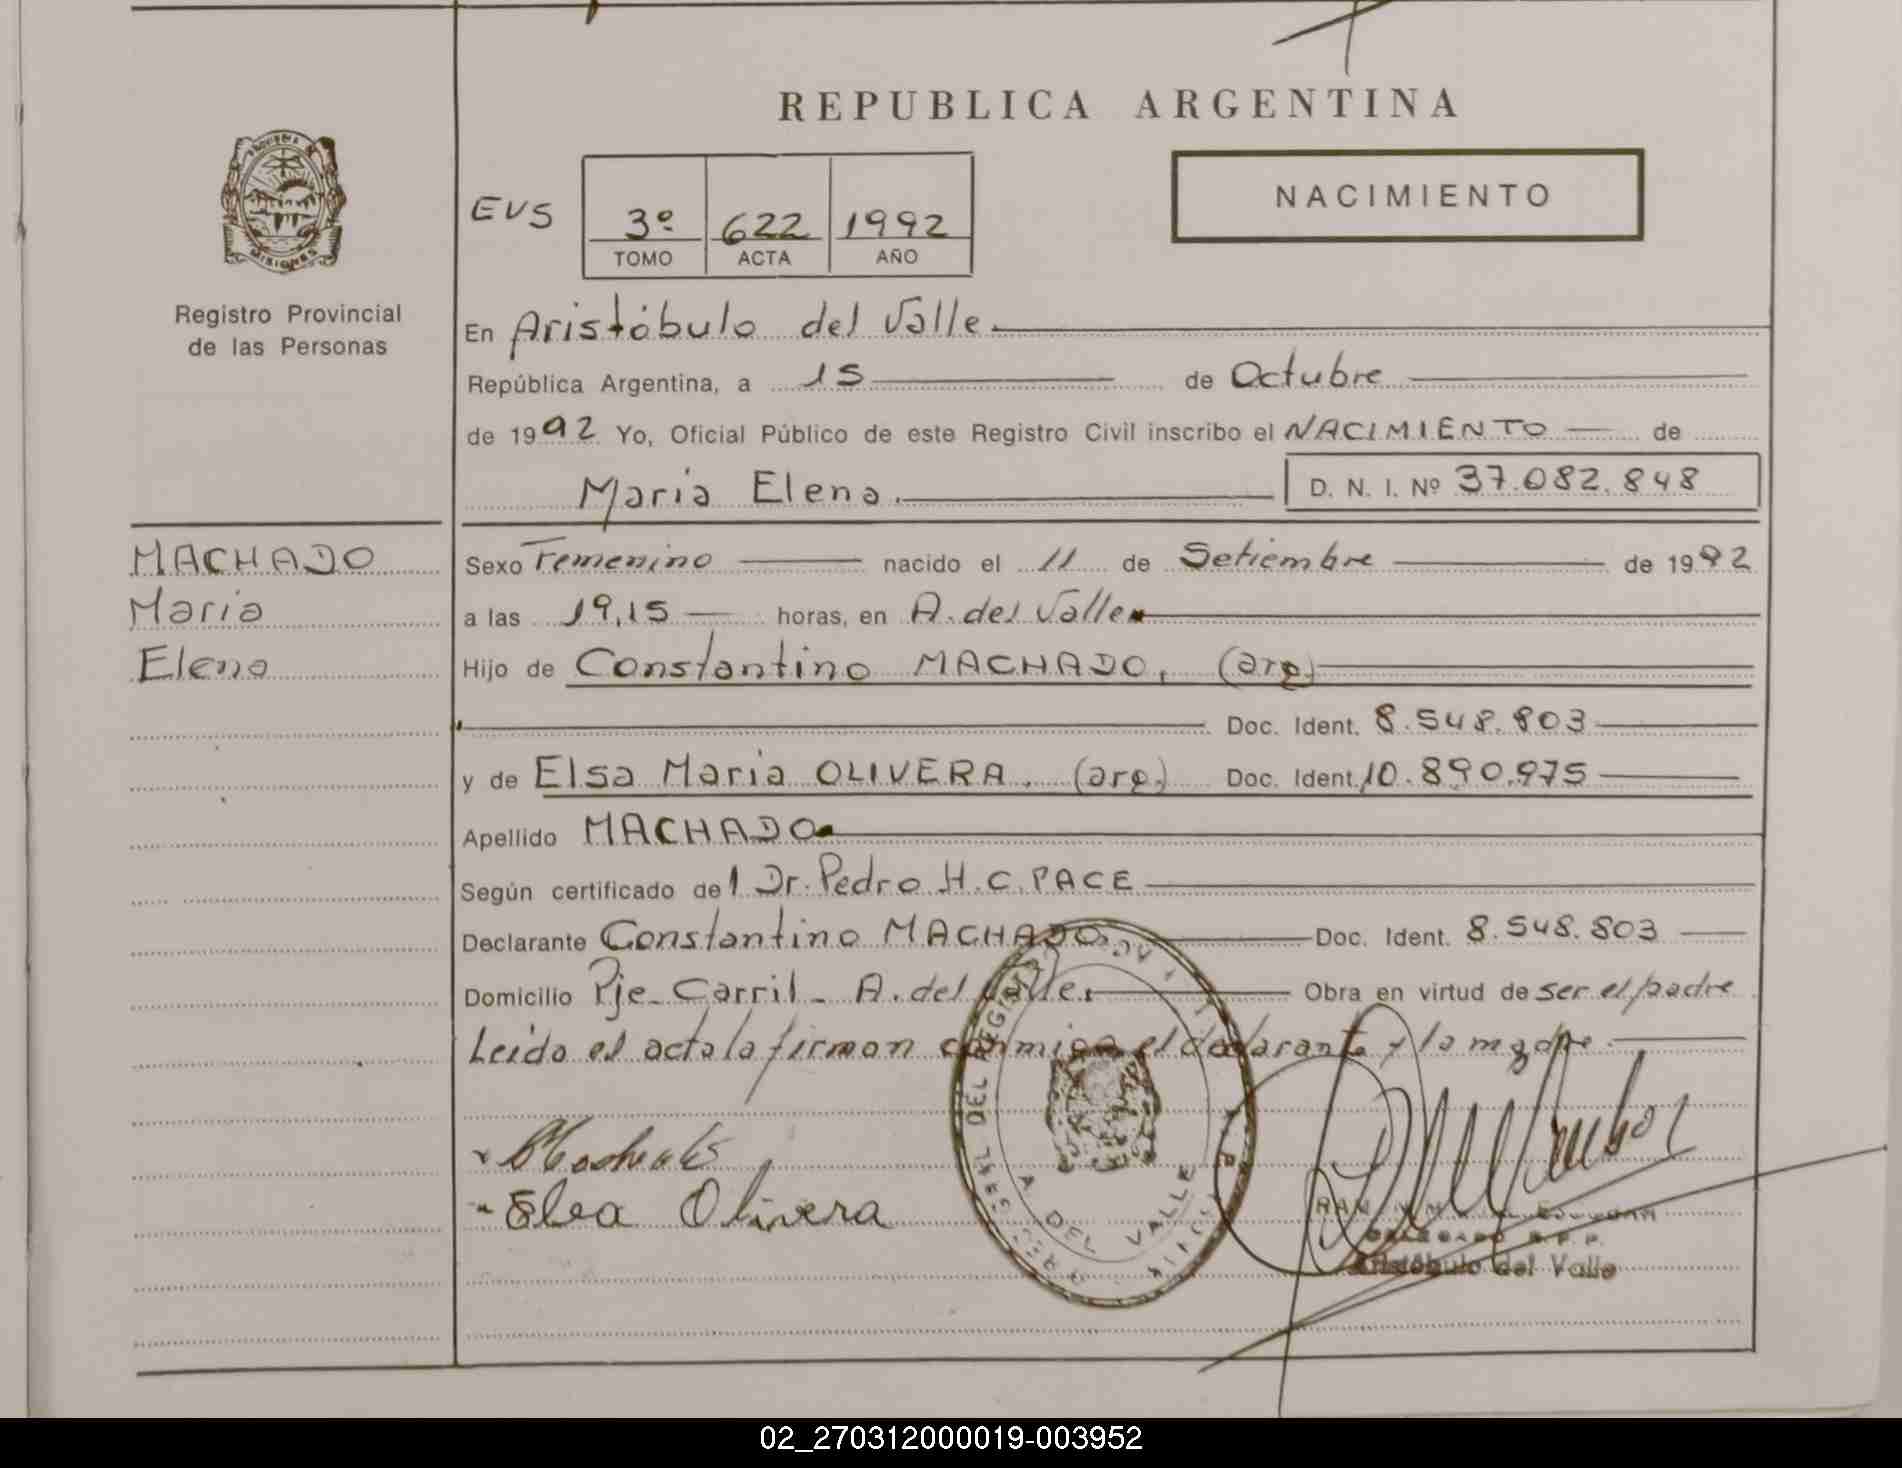 REPUBLICA ARGENTINA
NACIMIENTO
EVS
3º 622 1992
TOMO ACTA AÑO
MISIONES
Registro Provincial
de las Personas
En Aristóbulo del Valle.
República Argentina, a 15 de Octubre
de 1992 Yo, Oficial Público de este Registro Civil inscribo el NACIMIENTO de
Maria Elena. D. N. I. Nº 37.082.848
MACHADO
Maria
Elena
Sexo Femenino nacido el 11 de Setiembre de 1992
a las 19,15 horas, en A. del Valle
Hijo de Constantino MACHADO, (arg.)
Doc. Ident. 8.548.803
y de Elsa Maria OLIVERA. (arg.) Doc. Ident. 10.890.975
Apellido MACHADO
Según certificado del Dr. Pedro H. C. PACE
Declarante Constantino MACHADO. Doc. Ident. 8.548.803
Domicilio Pje. Carril - A. del Valle. Obra en virtud de ser el padre
Leida el acta la firman conmigo el declarante y la madre.
Elsa Olivera
A DEL VALLE
Aristóbulo del Valle
02_270312000019-003952